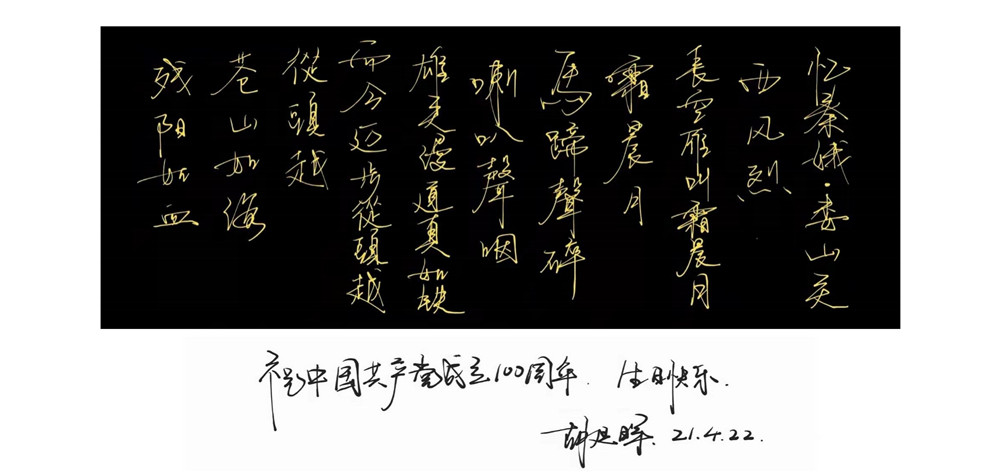 忆秦娥·娄山关
西风烈
長空雁叫霜晨月
霜晨月
馬蹄聲碎
喇叭聲咽
雄关漫道真如铁
而今迈步從頭越
從頭越
苍山如海
残阳如血
祝中国共产党成立100周年. 生日快乐.
21.4.22.